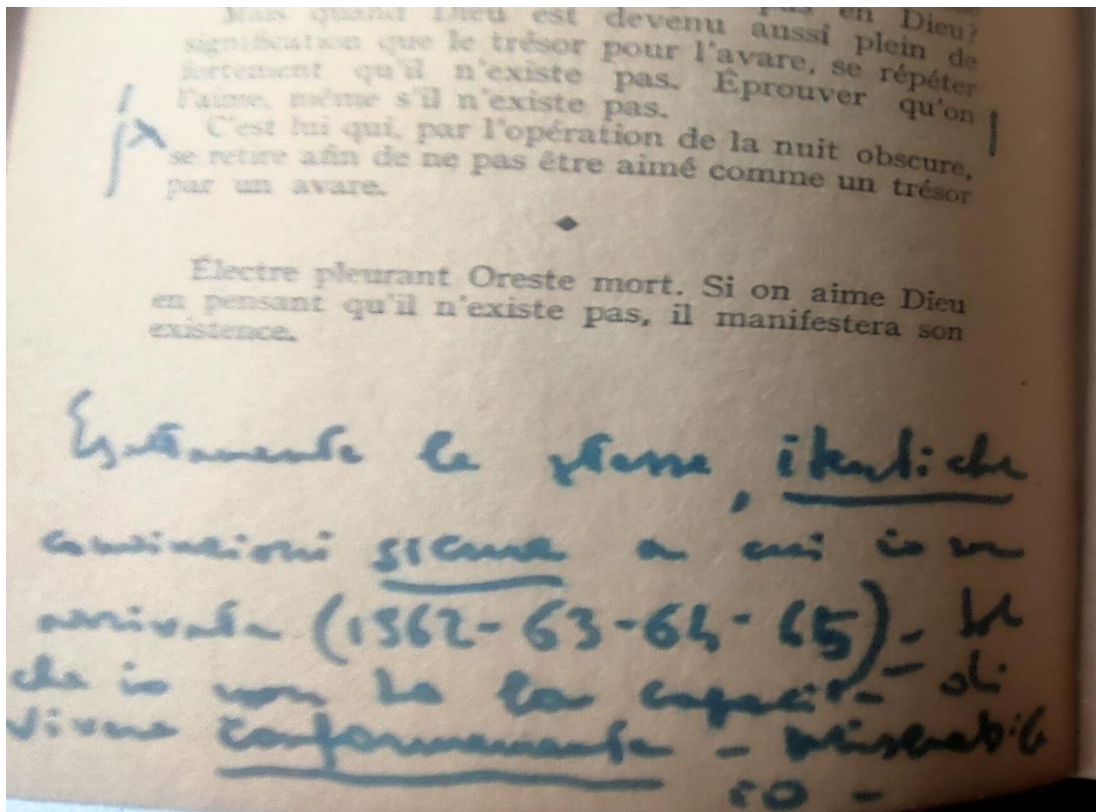 pas en Dieu?
Mais quand Dieu est devenu aussi plein de
signification que le trésor pour l'avare, se répéter
fortement qu'il n'existe pas. Éprouver qu'on
l'aime, même s'il n'existe pas.
C'est lui qui, par l'opération de la nuit obscure,
se retire afin de ne pas être aimé comme un trésor
par un avare.
Électre pleurant Oreste mort. Si on aime Dieu
en pensant qu'il n'existe pas, il manifestera son
existence.
Esattamente le stesse, identiche
convinzioni sicure a cui io ero
arrivata (1962-63-64-65) -
che io non ho la capacità di
vivere conformemente - miserabile
io -